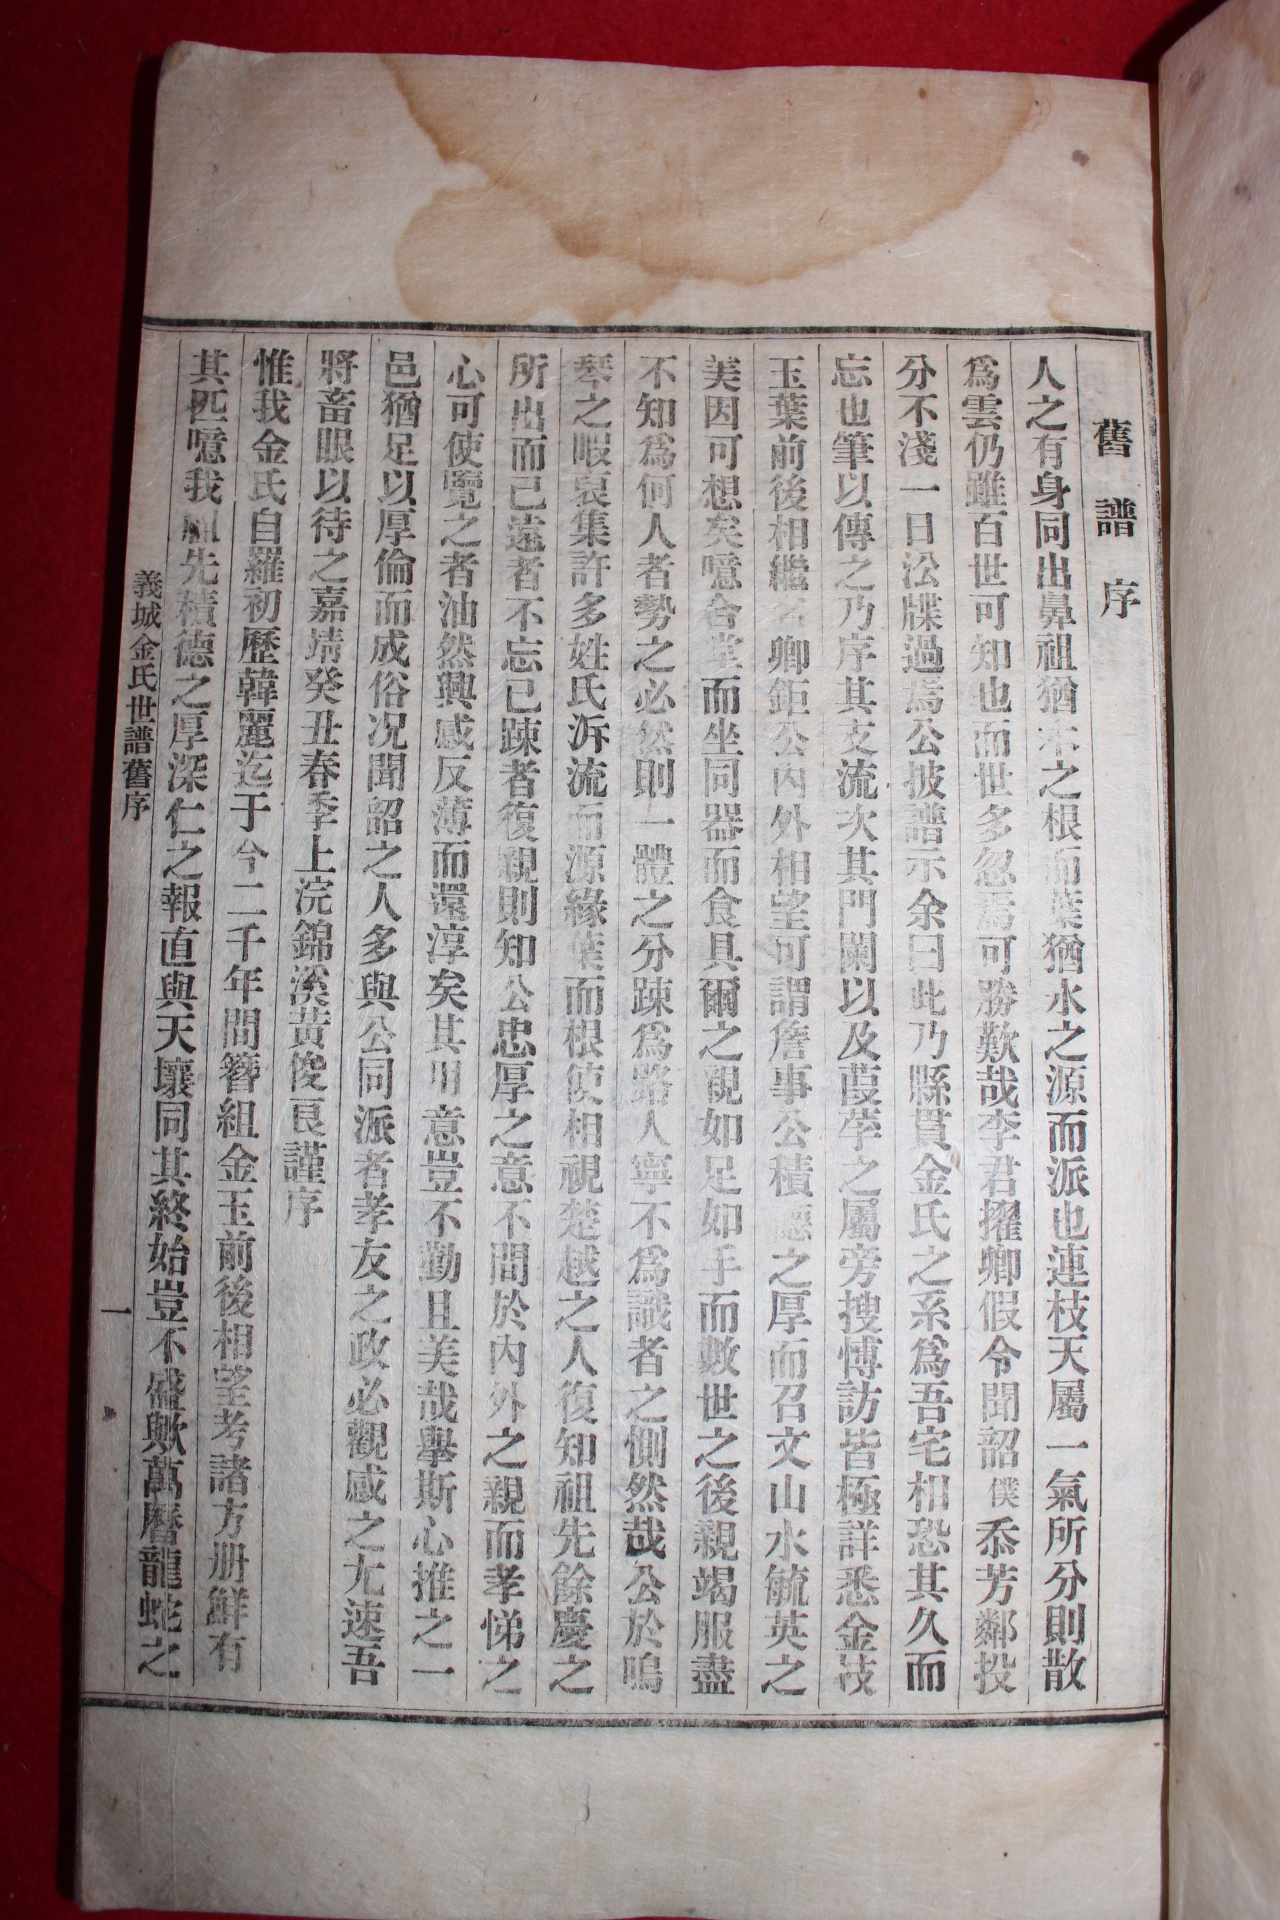 舊譜序
人之有身同出鼻祖猶木之根而葉猶水之源而派也連枝天屬一氣所分則散
爲雲仍雖百世可知也而世多忽焉可勝歎哉李君擢卿假令聞韶僕忝芳鄰投
分不淺一日公牒過焉公披譜示余曰此乃縣貫金氏之系爲吾宅相恐其久而
忘也筆以傳之乃序其支流次其門闌以及葭莩之屬旁搜愽訪皆極詳悉金枝
玉葉前後相繼名卿鉅公內外相望可謂詹事公積德之厚而召文山水毓英之
美因可想矣噫合堂而坐同器而食具爾之親如足如手而數世之後親竭服盡
不知爲何人者勢之必然則一體之分踈爲路人寧不爲識者之惻然哉公於鳴
琴之暇裒集許多姓氏泝流而源緣葉而根使相視楚越之人復知祖先餘慶之
所出而已遠者不忘已踈者復親則知公忠厚之意不間於內外之親而孝悌之
心可使覽之者油然興感反薄而還淳矣其用意豈不勤且美哉擧斯心推之一
邑猶足以厚倫而成俗况聞韶之人多與公同派者孝友之政必觀感之尤速吾
將畜眼以待之嘉靖癸丑春季上浣錦溪黃俊良謹序
惟我金氏自羅初歷韓麗迄于今二千年間簪組金玉前後相望考諸方册鮮有
其匹噫我祖先積德之厚深仁之報直與天壤同其終始豈不盛歟萬曆龍蛇之
義城金氏世譜舊序
一